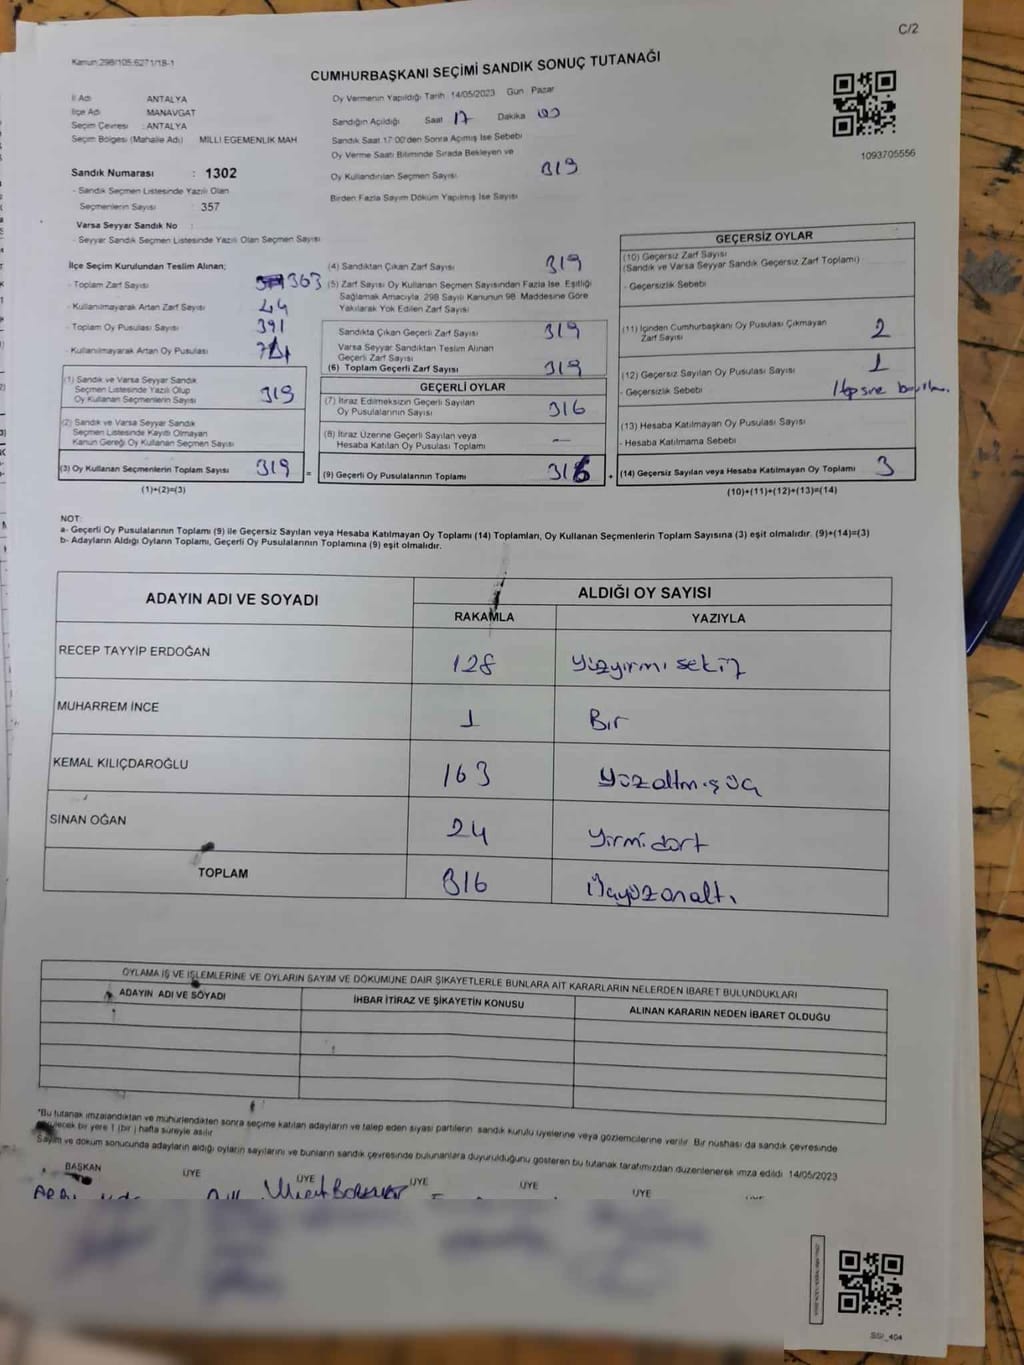 C/2
Kanun:298/105,6271/18-1
CUMHURBAŞKANI SEÇİMİ SANDIK SONUÇ TUTANAĞI
İl Adı ANTALYA
İlçe Adı MANAVGAT
Seçim Çevresi : ANTALYA
Seçim Bölgesi (Mahalle Adı) MİLLİ EGEMENLİK MAH
Sandık Numarası : 1302
- Sandık Seçmen Listesinde Yazılı Olan
Seçmenlerin Sayısı : 357
Varsa Seyyar Sandık No :
- Seyyar Sandık Seçmen Listesinde Yazılı Olan Seçmen Sayısı
Oy Vermenin Yapıldığı Tarih :14/05/2023 Gün : Pazar
Sandığın Açıldığı Saat 17 Dakika 00
Sandık Saat 17:00'den Sonra Açılmış İse Sebebi
Oy Verme Saati Bitiminde Sırada Bekleyen ve
Oy Kullandırılan Seçmen Sayısı 319
Birden Fazla Sayım Döküm Yapılmış İse Sayısı
1093705556
İlçe Seçim Kurulundan Teslim Alınan;
- Toplam Zarf Sayısı 363
- Kullanılmayarak Artan Zarf Sayısı 44
- Toplam Oy Pusulası Sayısı 391
- Kullanılmayarak Artan Oy Pusulası
(1) Sandık ve Varsa Seyyar Sandık
Seçmen Listesinde Yazılı Olup
Oy Kullanan Seçmenlerin Sayısı 319
(2) Sandık ve Varsa Seyyar Sandık
Seçmen Listesinde Kayıtlı Olmayan
Kanun Gereği Oy Kullanan Seçmen Sayısı
(3) Oy Kullanan Seçmenlerin Toplam Sayısı 319 =
(1)+(2)=(3)
(4) Sandıktan Çıkan Zarf Sayısı 319
(5) Zarf Sayısı Oy Kullanan Seçmen Sayısından Fazla İse, Eşitliği
Sağlamak Amacıyla, 298 Sayılı Kanunun 98. Maddesine Göre
Yakılarak Yok Edilen Zarf Sayısı
Sandıkta Çıkan Geçerli Zarf Sayısı 319
Varsa Seyyar Sandıktan Teslim Alınan
Geçerli Zarf Sayısı
(6) Toplam Geçerli Zarf Sayısı 319
GEÇERLİ OYLAR
(7) İtiraz Edilmeksizin Geçerli Sayılan
Oy Pusulalarının Sayısı 316
(8) İtiraz Üzerine Geçerli Sayılan veya
Hesaba Katılan Oy Pusulası Toplamı —
(9) Geçerli Oy Pusulalarının Toplamı 316 +
GEÇERSİZ OYLAR
(10) Geçersiz Zarf Sayısı
(Sandık ve Varsa Seyyar Sandık Geçersiz Zarf Toplamı)
- Geçersizlik Sebebi
(11) İçinden Cumhurbaşkanı Oy Pusulası Çıkmayan
Zarf Sayısı 2
(12) Geçersiz Sayılan Oy Pusulası Sayısı 1
- Geçersizlik Sebebi
(13) Hesaba Katılmayan Oy Pusulası Sayısı
- Hesaba Katılmama Sebebi
(14) Geçersiz Sayılan veya Hesaba Katılmayan Oy Toplamı 3
(10)+(11)+(12)+(13)=(14)
NOT:
a- Geçerli Oy Pusulalarının Toplamı (9) ile Geçersiz Sayılan veya Hesaba Katılmayan Oy Toplamı (14) Toplamları, Oy Kullanan Seçmenlerin Toplam Sayısına (3) eşit olmalıdır. (9)+(14)=(3)
b- Adayların Aldığı Oyların Toplamı, Geçerli Oy Pusulalarının Toplamına (9) eşit olmalıdır.
ADAYIN ADI VE SOYADI
ALDIĞI OY SAYISI
RAKAMLA YAZIYLA
RECEP TAYYİP ERDOĞAN 128 Yüzyirmi sekiz
MUHARREM İNCE 1 Bir
KEMAL KILIÇDAROĞLU 163 Yüzaltmışüç
SİNAN OĞAN 24 Yirmidört
TOPLAM 316 Üçyüzonaltı
OYLAMA İŞ VE İŞLEMLERİNE VE OYLARIN SAYIM VE DÖKÜMÜNE DAİR ŞİKAYETLERLE BUNLARA AİT KARARLARIN NELERDEN İBARET BULUNDUKLARI
ADAYIN ADI VE SOYADI İHBAR İTİRAZ VE ŞİKAYETİN KONUSU ALINAN KARARIN NEDEN İBARET OLDUĞU
*Bu tutanak imzalandıktan ve mühürlendikten sonra seçime katılan adayların ve talep eden siyasi partilerin sandık kurulu üyelerine veya gözlemcilerine verilir. Bir nüshası da sandık çevresinde
bir yere 1 (bir ) hafta süreyle asılır.
Sayım ve döküm sonucunda adayların aldığı oyların sayılarını ve bunların sandık çevresinde bulunanlara duyurulduğunu gösteren bu tutanak tarafımızdan düzenlenerek imza edildi. 14/05/2023
BAŞKAN ÜYE ÜYE ÜYE ÜYE ÜYE
SSI_404